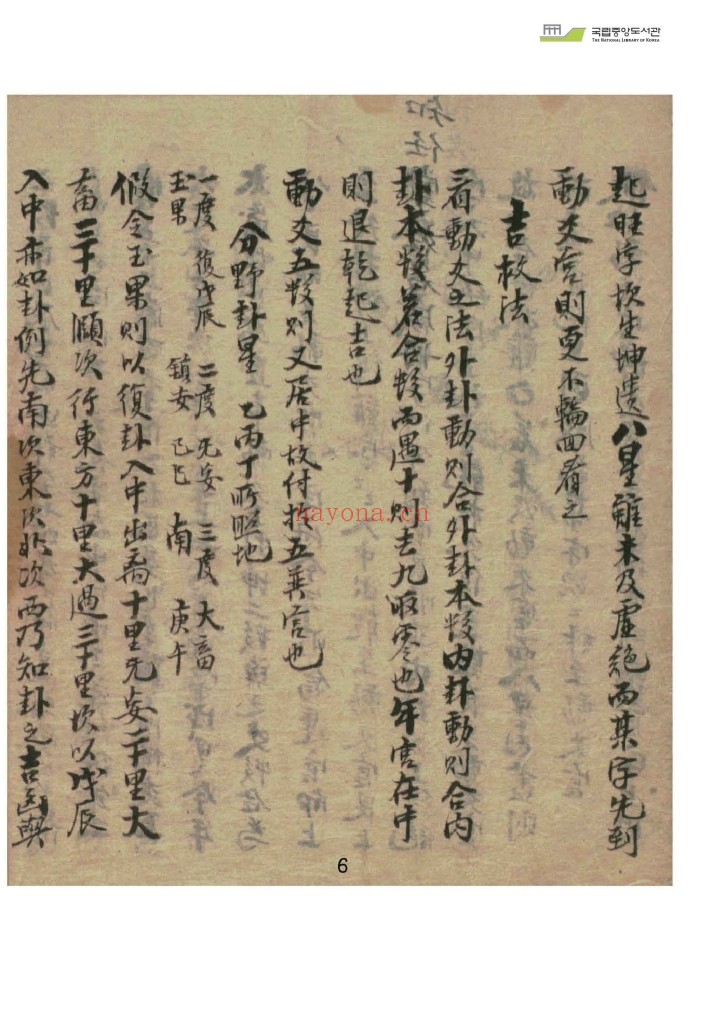 국립중앙도서관
THE NATIONAL LIBRARY OF KOREA
起旺字坎生坤遺八星雖未及虛絶而某字先到
動爻宮則更不輪回看之
吉救法
看動爻之法外卦動則合外卦本數內卦動則合內
卦本數若合數而過十則去九取零也年宮在中
則退乾起吉也
動爻五數則又居中故付於五黃宮也
分野卦星 乙丙丁所照地
一度 復戊辰 二度 无妄 三度 大畜
玉果 鎮安 己巳 南 庚午
假令玉果則以復卦入中出震十里无妄二十里大
畜三十里順次行東方十里大過三十里坎以戊辰
入中亦如卦例先南次東次北次西乃知卦之吉凶與
nayona.cn
6